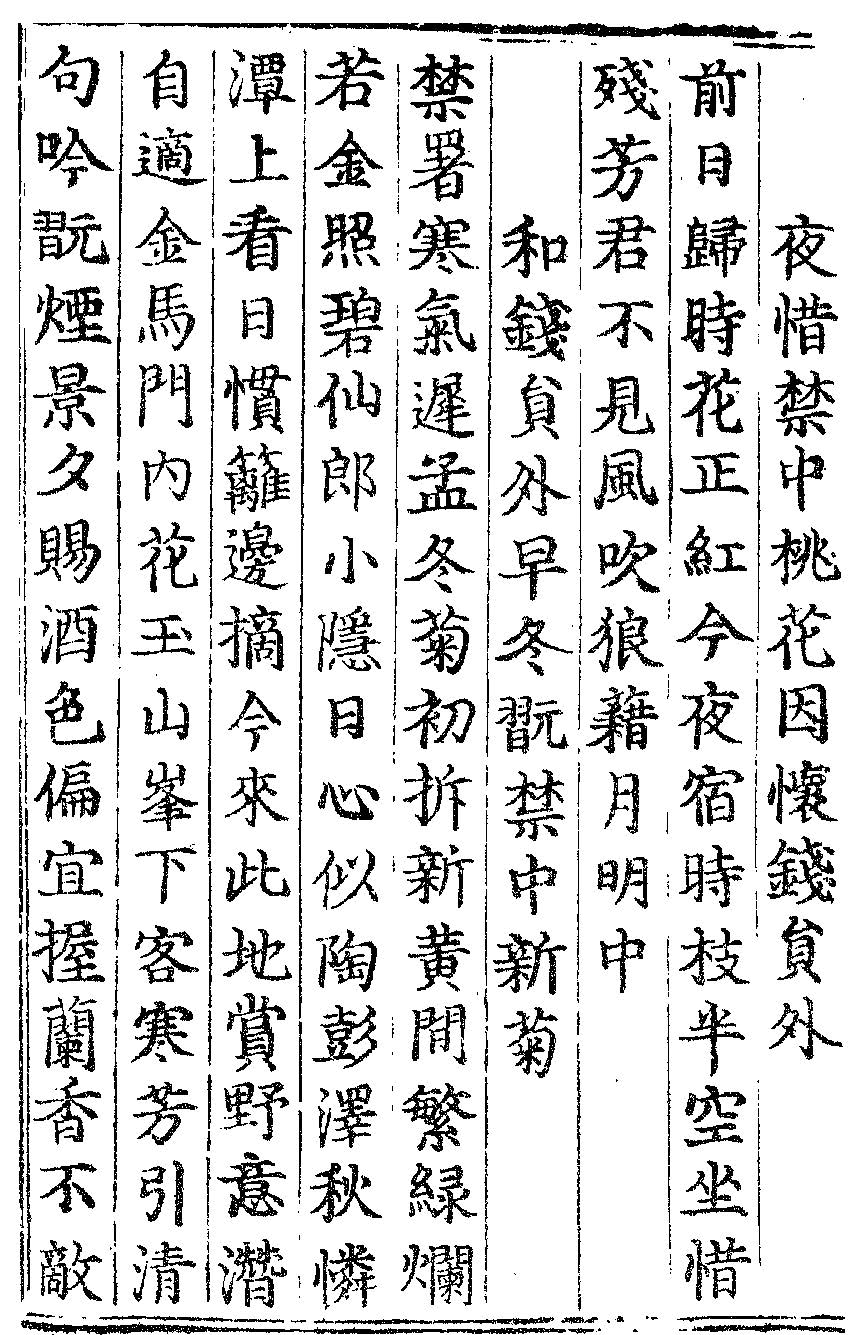 夜惜禁中桃花因懷錢貟外
前日歸時花正紅今夜宿時枝半空坐惜
殘芳君不見風吹狼藉月明中
和錢貟外早冬翫禁中新菊
禁署寒氣遲孟冬菊初拆新黃間繁緑爛
若金照碧仙郎小隱日心似陶彭澤秋憐
潭上看日慣籬邊摘今來此地賞野意潛
自適金馬門內花玉山峯下客寒芳引清
句吟翫煙景夕賜酒色偏宜握蘭香不敵